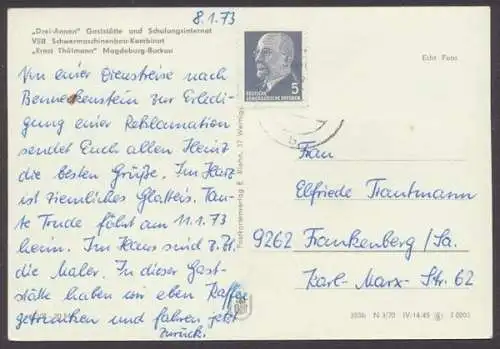 8.1.73
„Drei-Annen" Gaststätte und Schulungsinternat
VEB Schwermaschinenbau-Kombinat
„Ernst Thälmann" Magdeburg-Buckau
Von einer Dienstreise nach
Benneckenstein zur Erledi-
gung einer Reklamation
sendet Euch allen Heinz
die besten Grüße. Im Harz
ist ziemliches Glatteis. Tan-
te Trude fährt am 11.1.73
heim. Im Haus sind z.Zt.
die Maler. In dieser Gast-
stätte haben wir eben Kaffee
getrunken und fahren jetzt
zurück.
Postkartenverlag E. Riehn, 37 Wernige
DEUTSCHE
DEMOKRATISCHE REPUBLIK
5
Echt Foto
Frau
Elfriede Trautmann
9262 Frankenberg/Sa.
Karl-Marx-Str. 62
N 1/70 IV-14-45